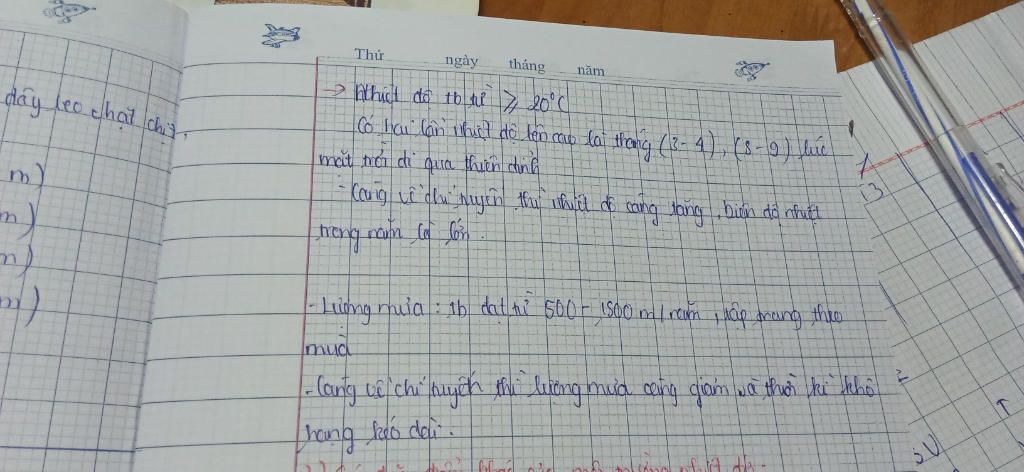 Thứ ngày tháng năm
dây leo chạt chịt,
m)
m)
m)
m)
→ Nhiệt độ tb từ ≥ 20°C
Có hai lần nhiệt độ lên cao tại tháng (3-4), (8-9) lúc
mặt trời đi qua thiên đỉnh
- Càng về chí tuyến thì nhiệt độ càng tăng, biên độ nhiệt
trong năm lớn.
- Lượng mưa: tb đạt từ 500 - 1500 m/năm, tập trung theo
mùa
- Càng về chí tuyến thì lượng mưa càng giảm và thời kì khô
hạng kéo dài.